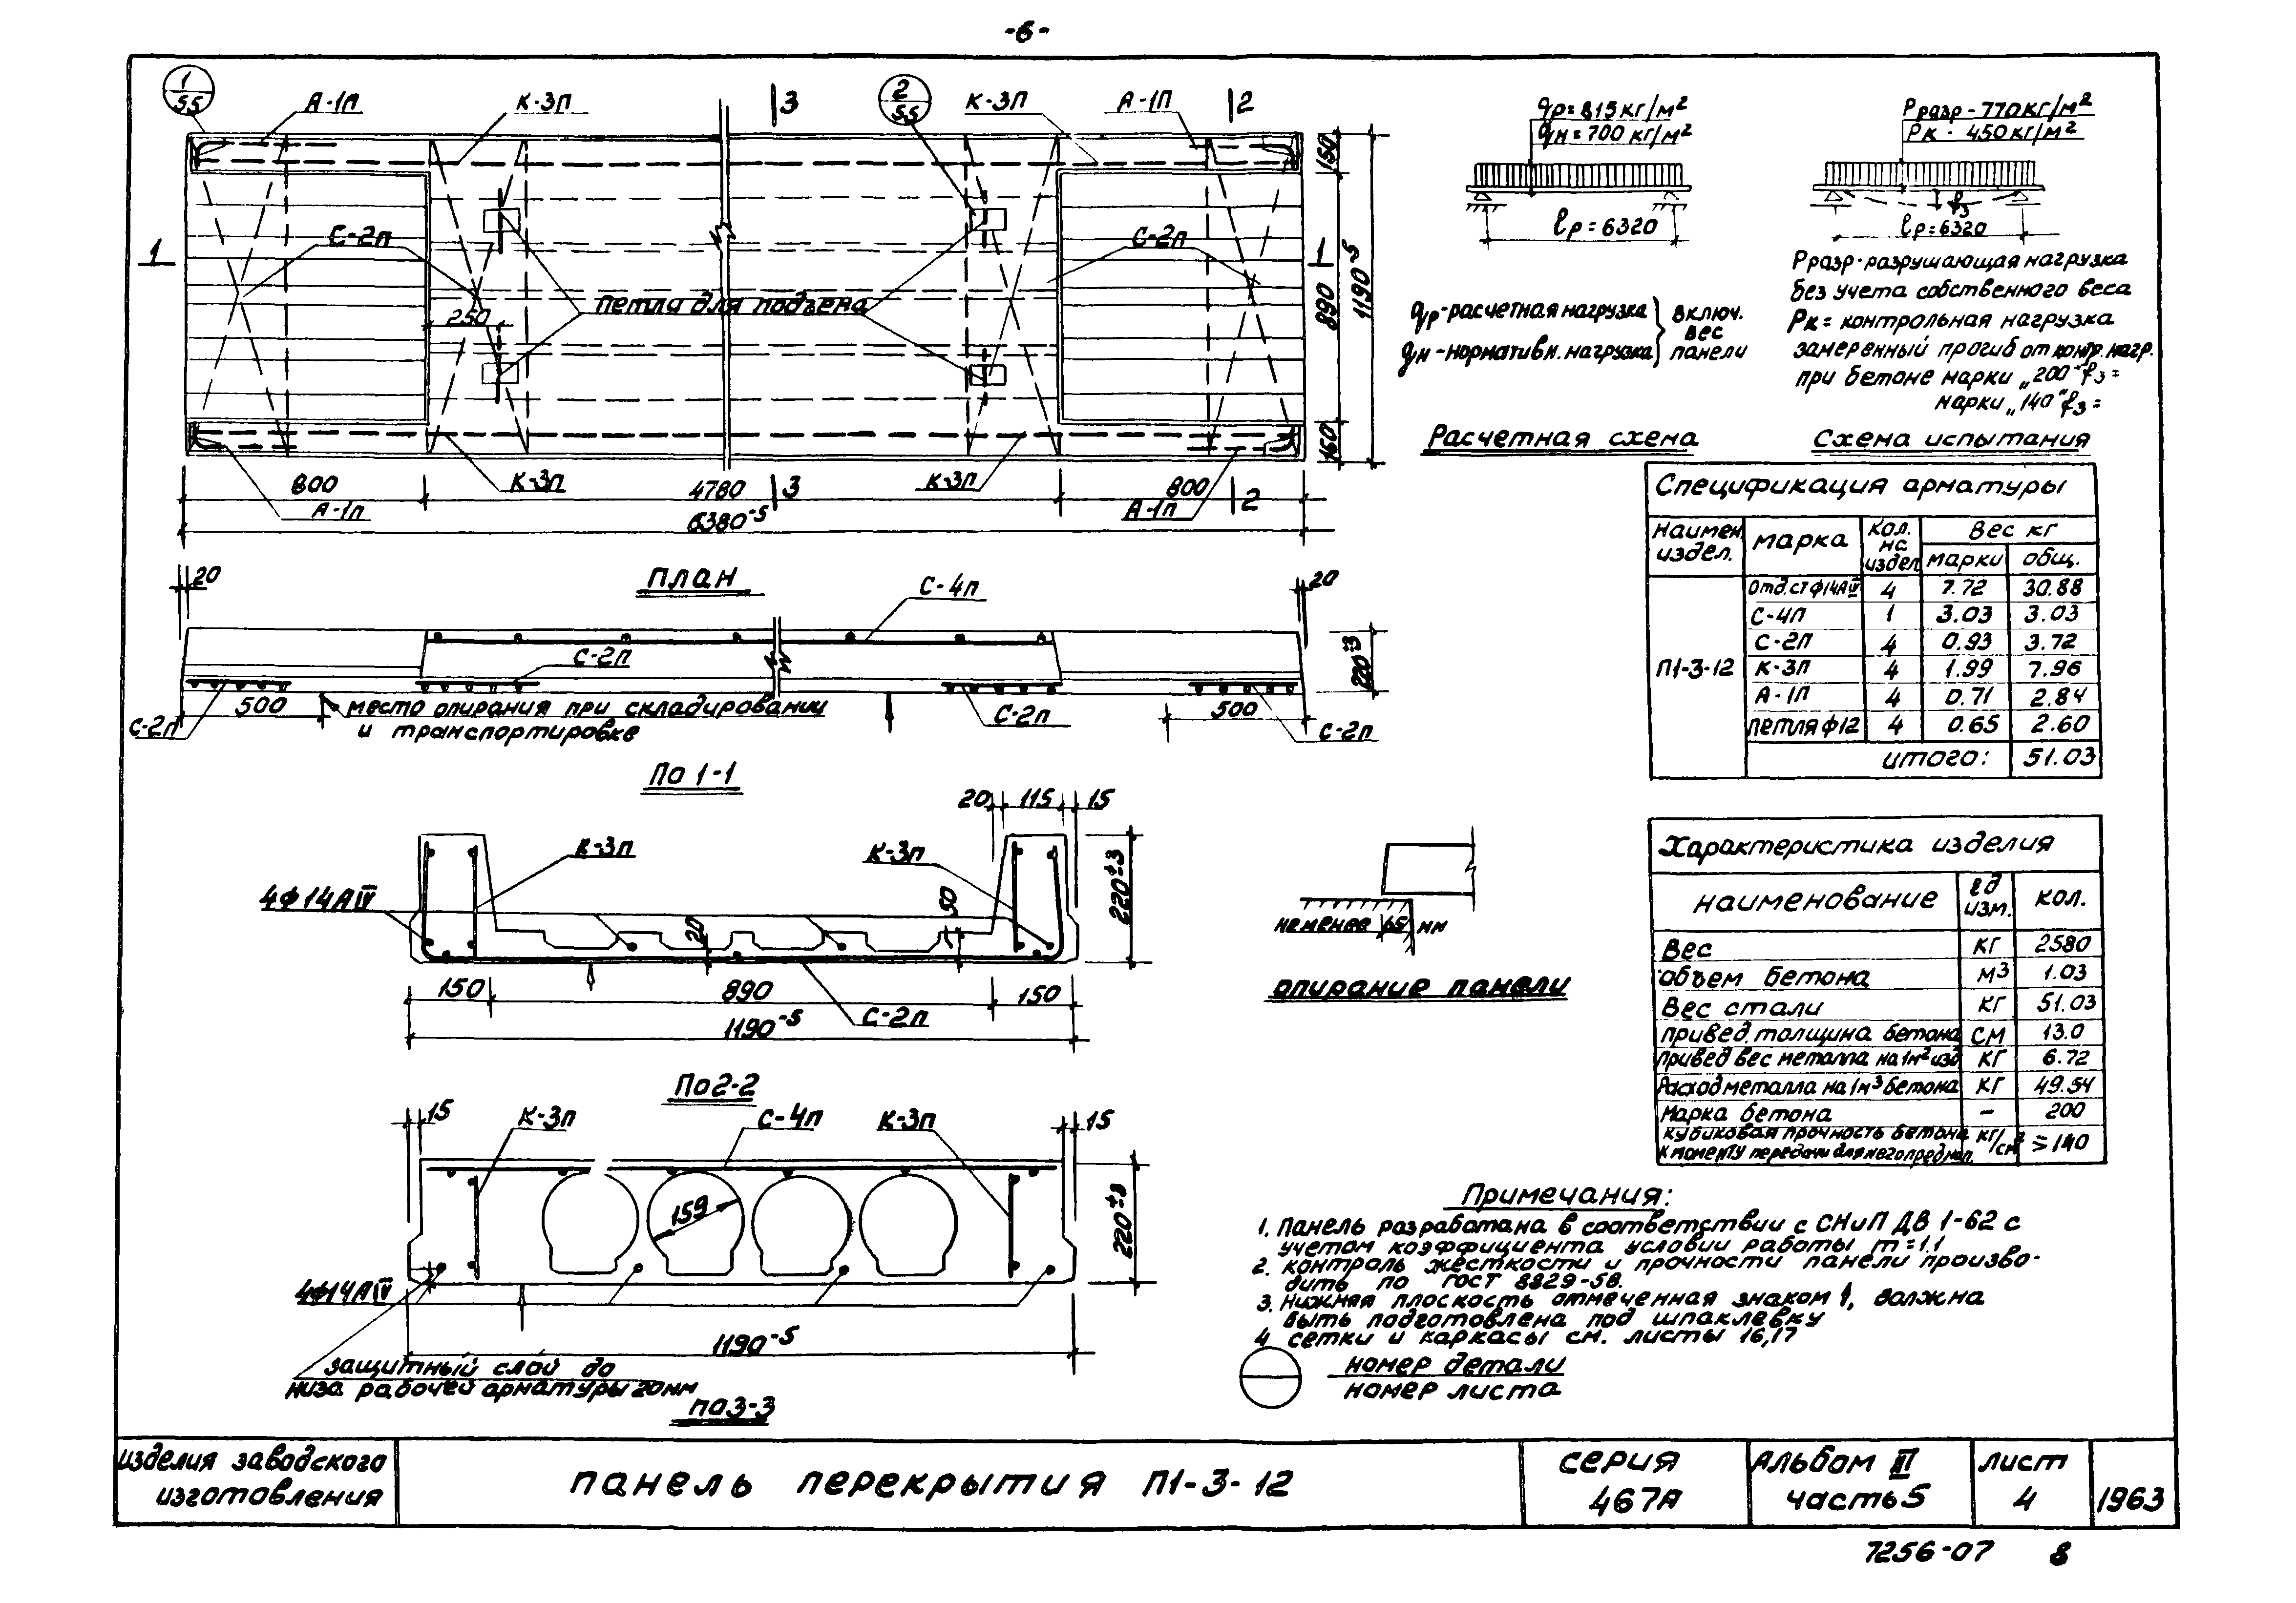 -6-
1
55
А-1п
К-3п
3
2
55
К-3п
А-1П
2
150
С-2п
1
С-2п
1
890
1190-5
петля для подъема
250
160
800
К-3п
4780
3
К-3п
800
А-1п
А-1п
2
6380-5
20
План
С-4п
20
С-2п
220±3
С-2п
500
место опирания при складировании
и транспортировке
С-2п
500
С-2п
По 1-1
20
115
15
К-3п
К-3п
4Ф14АIV
20
50
220±3
150
890
150
С-2п
1190-5
По 2-2
15
К-3п
С-4п
К-3п
15
159
220±3
4Ф14АIV
1190-5
защитный слой до
низа рабочей арматуры 20мм
по 3-3
qр=815кг/м2
qн=700кг/м2
lр=6320
qр-расчетная нагрузка
qн-нормативн. нагрузка
включ.
вес
панели
Расчетная схема
Рразр-770кг/м2
Рк-450кг/м2
f3
lр=6320
Рразр-разрушающая нагрузка
без учета собственного веса
Рк=контрольная нагрузка
замеренный прогиб от контр. нагр.
при бетоне марки „200" f3=
марки „140" f3=
Схема испытания
Спецификация арматуры
Наимен. издел. марка кол. на издел. Вес кг
марки общ.
П1-3-12
Отд.ст Ф14АIV 4 7.72 30.88
С-4П 1 3.03 3.03
С-2П 4 0.93 3.72
К-3п 4 1.99 7.96
А-1П 4 0.71 2.84
петля Ф12 4 0.65 2.60
итого: 51.03
не менее 65 мм
опирание панели
Характеристика изделия
наименование ед. изм. кол.
Вес кг 2580
объем бетона м3 1.03
Вес стали кг 51.03
привед. толщина бетона см 13.0
привед вес металла на 1м2 изд кг 6.72
Расход металла на 1м3 бетона кг 49.54
Марка бетона - 200
кубиковая прочность бетона кг/см2 ≥140
к моменту передачи для него преднап.
Примечания:
1. Панель разработана в соответствии с СНиП ДВ 1-62 с
учетом коэффициента условий работы m=1.1
2. контроль жесткости и прочности панели произво-
дить по гост 8829-58.
3. Нижняя плоскость отмеченная знаком ↑, должна
быть подготовлена под шпаклевку
4 сетки и каркасы см. листы 16,17
номер детали
номер листа
изделия заводского
изготовления
панель перекрытия П1-3-12
серия
467А
Альбом III
часть 5
лист
4
1963
7256-07 8